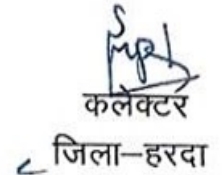 कलेक्टर
जिला–हरदा